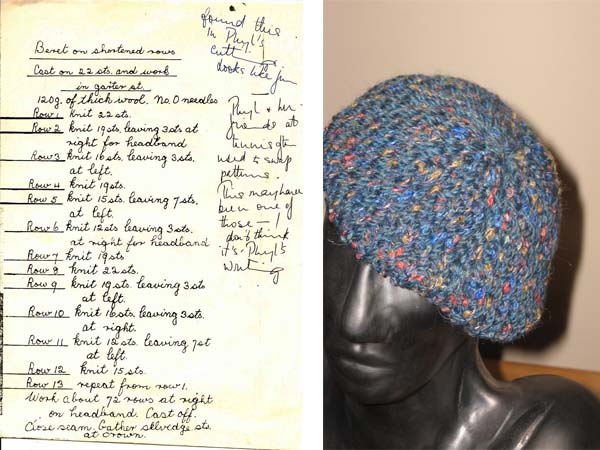 Beret on shortened rows
Cast on 22 sts. and work
in garter st.
120g. of thick wool. No. 0 needles
Row 1 knit 22 sts.
Row 2 knit 19 sts, leaving 3 sts at
right for headband
Row 3 knit 16 sts, leaving 3 sts.
at left.
Row 4 knit 19 sts.
Row 5 knit 15 sts, leaving 7 sts.
at left.
Row 6 knit 12 sts leaving 3 sts.
at right for headband
Row 7 knit 19 sts
Row 8 knit 22 sts.
Row 9 knit 19 sts. leaving 3 sts
at left.
Row 10 knit 16 sts. leaving 3 sts
at right.
Row 11 knit 12 sts. leaving 7 st
at left.
Row 12 knit 15 sts.
Row 13 repeat from row 1.
Work about 72 rows at right
on headband. Cast off.
Close seam. Gather selvedge sts.
at crown.
found this
in Phyl's
looks like fun
Phyl & her
friends at
used to swap
patterns.
This may have
been one of
those — I
don't think
it's Phyl's
writing